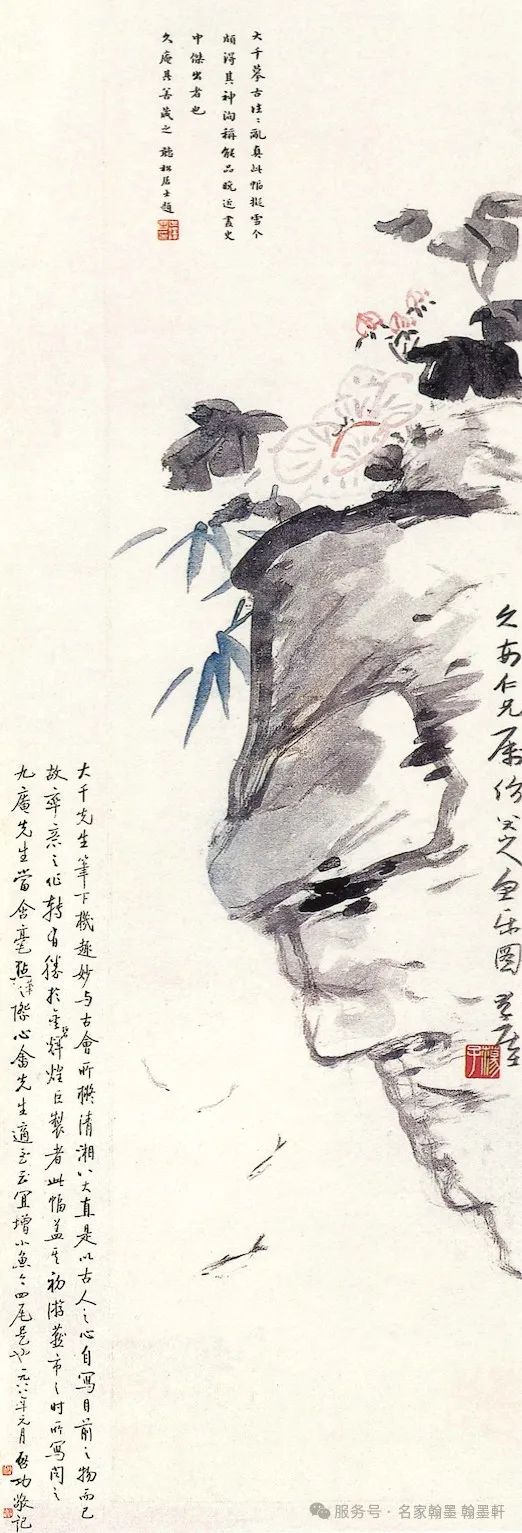 大千摹古往々亂真此幅擬雪个
頗得其神洵稱能品晚近畫史
中傑出者也
久庵其善藏之 聽松居士題
久安仁兄屬仿八大魚樂圖
大千先生筆下機趣妙与古會所橅清湘八大直是以古人之心自寫目前之物而已
故率意之作轉有勝於金碧輝煌巨製者此幅蓋其初游燕市之時所寫聞之
九庵先生當含毫點之際心畬先生適至云宜增小魚々四尾是也 元月 啟功敬記
服务号 · 名家翰墨 翰墨軒